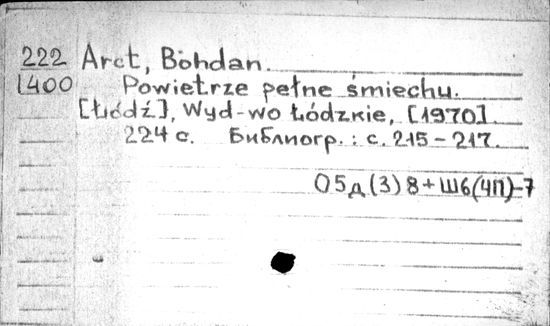 222 Arct, Bohdan.
1400 Powietrze pełne śmiechu.
[Łódź], Wyd-wo Łódzkie, [1970].
224 с. Библиогр.: с. 215-217.
О5д(3)8+Ш6(4П)-7